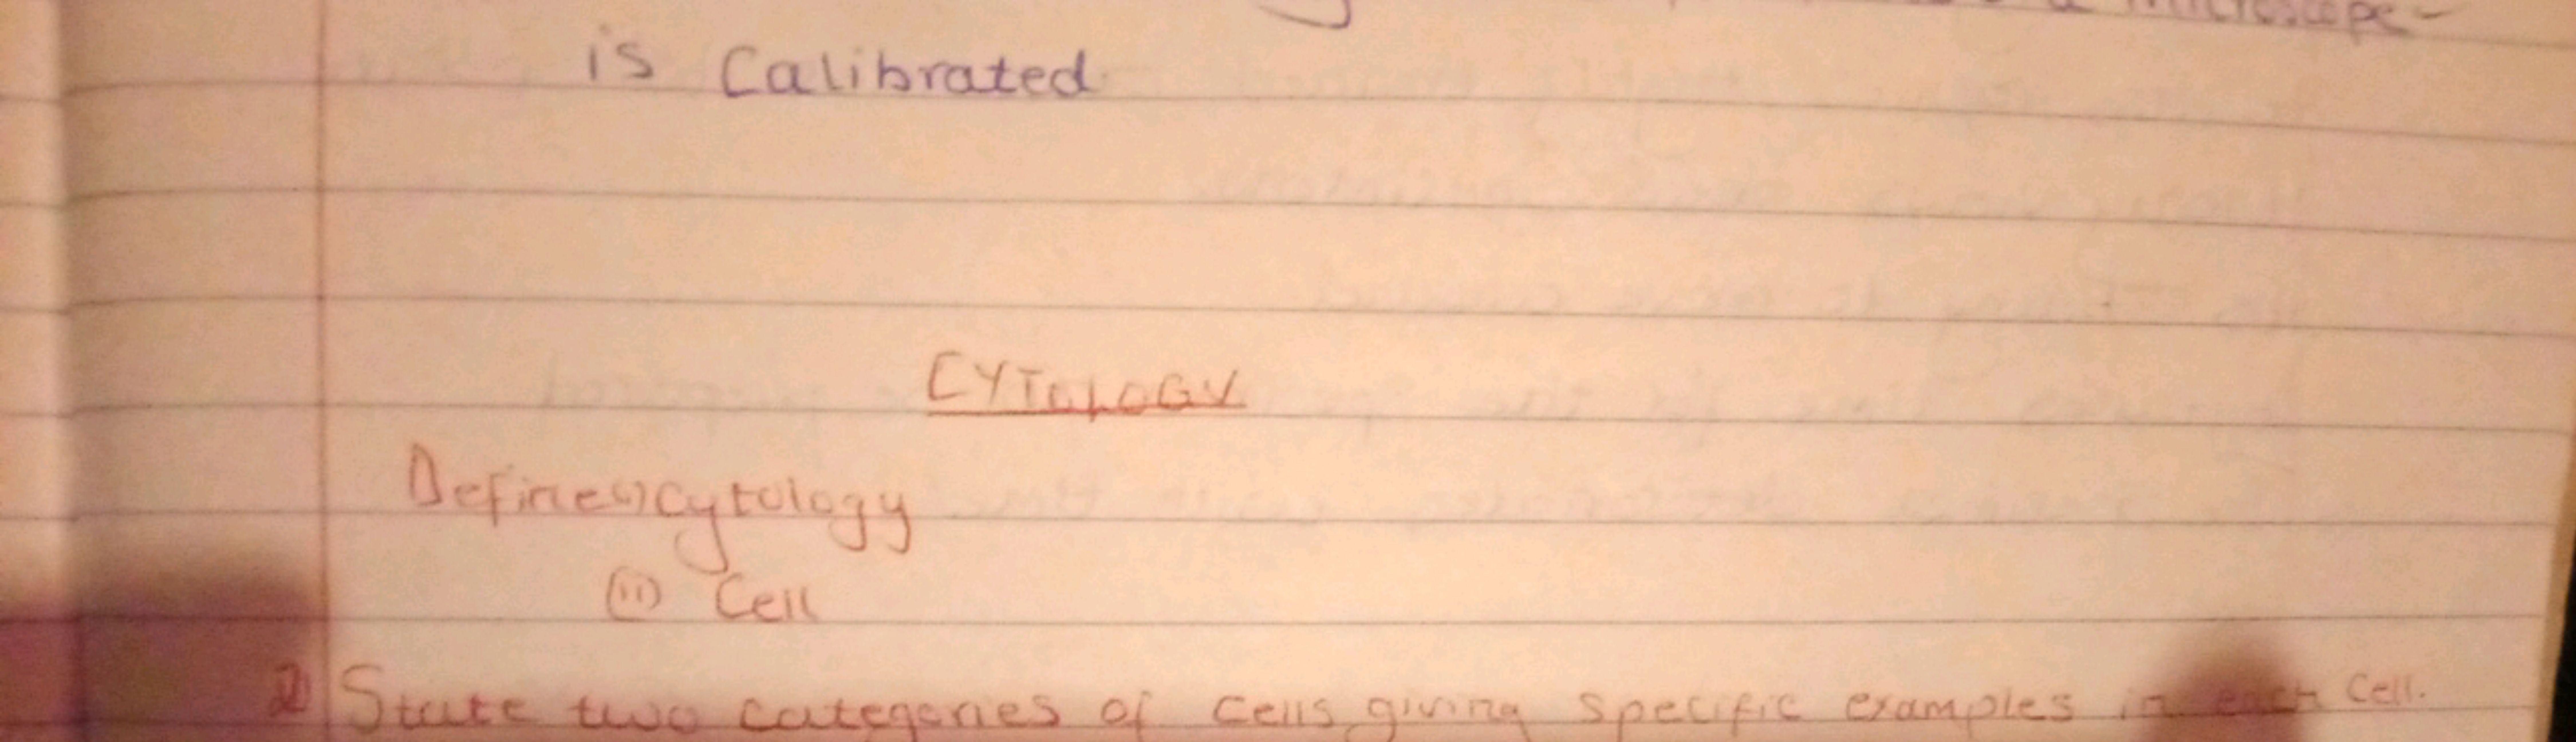 a microscope-
is Calibrated
CYTOLOGY
Define (i) cytology
(ii) Cell
2) State two categories of cells, giving specific examples in each Cell.